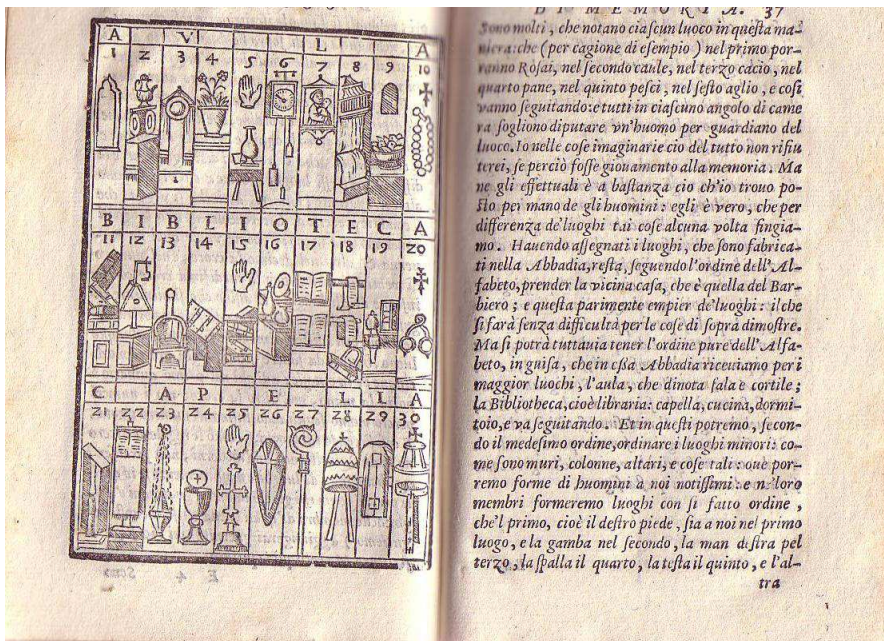 A V L A
1 2 3 4 5 6 7 8 9 10
B I B L I O T E C A
11 12 13 14 15 16 17 18 19 20
C A P E L L A
21 22 23 24 25 26 27 28 29 30
DI MEMORIA. 37
Sono molti, che notano ciaſcun luoco in queſta ma-
niera: che (per cagione di eſempio) nel primo por-
ranno Roſai, nel ſecondo caule, nel terzo cacio, nel
quarto pane, nel quinto peſci, nel ſeſto aglio, e coſi
vanno ſeguitando: e tutti in ciaſcuno angolo di came
ra ſogliono diputare vn'huomo per guardiano del
luoco. Io nelle coſe imaginarie cio del tutto non rifiu
terei, ſe perciò foſſe giouamento alla memoria. Ma
ne gli effettuali è a baſtanza cio ch'io trouo po-
ſto per mano de gli huomini: egli è vero, che per
differenza de'luoghi tai coſe alcuna volta fingia-
mo. Hauendo aſſegnati i luoghi, che ſono fabrica-
ti nella Abbadia, reſta, ſeguendo l'ordine dell'Al-
fabeto, prender la vicina caſa, che è quella del Bar-
biero; e queſta parimente empier de'luoghi: il che
ſi farà ſenza difficultà per le coſe di ſopra dimoſtre.
Ma ſi potrà tuttauia tener l'ordine pure dell'Alfa-
beto, in guiſa, che in eſſa Abbadia riceuiamo per i
maggior luochi, l'aula, che dinota ſala e cortile;
la Bibliotheca, cioè libraria: capella, cucina, dormi-
toio, e va ſeguitando. Et in queſti potremo, ſecon-
do il medeſimo ordine, ordinare i luoghi minori: co-
me ſono muri, colonne, altari, e coſe tali: oue por-
remo forme di huomini a noi notiſſimi: e ne'loro
membri formeremo luoghi con ſi fatto ordine,
che'l primo, cioè il deſtro piede, ſia a noi nel primo
luogo, e la gamba nel ſecondo, la man deſtra pel
terzo, la ſpalla il quarto, la teſta il quinto, e l'al-
tra